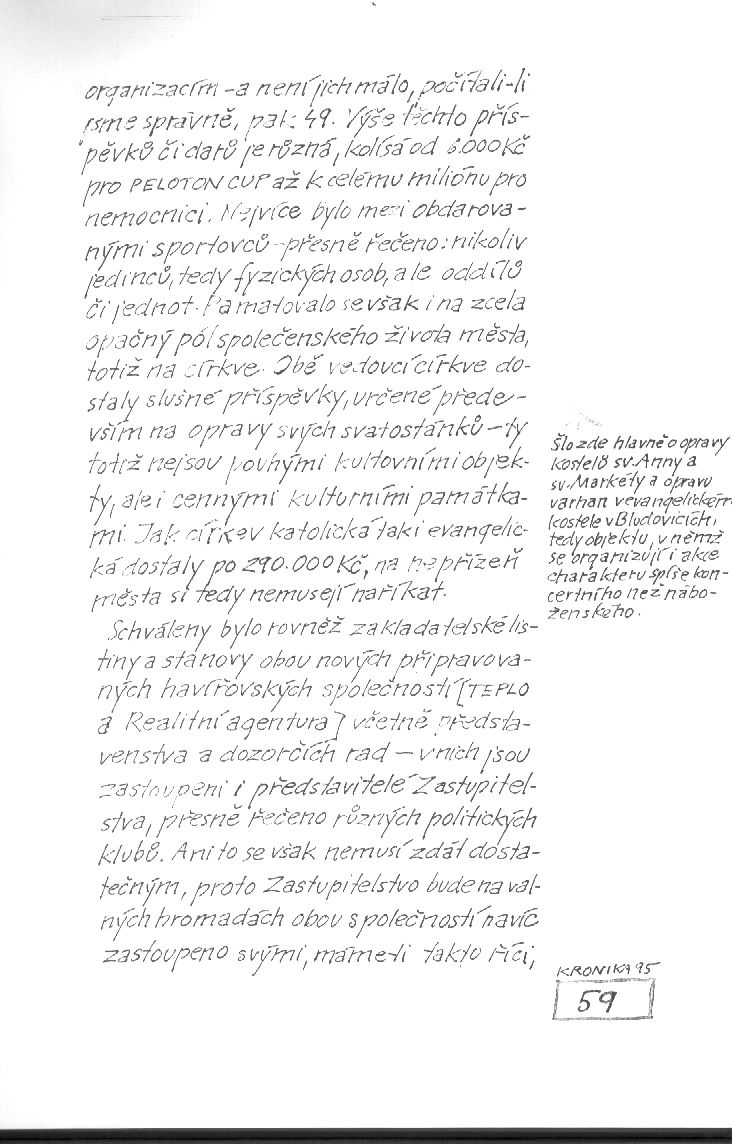 organizacím - a není jich málo, počítali-li
jsme správně, pak 49. Výše těchto přís-
pěvků či darů je různá, kolísá od 6.000 Kč
pro PELOTON CUP až k celému miliónu pro
nemocnici. Nejvíce bylo mezi obdarova-
nými sportovců - přesně řečeno: nikoliv
jedinců, tedy fyzických osob, ale oddílů
či jednot. Pamatovalo se však i na zcela
opačný pól společenského života města,
totiž na církve. Obě vedoucí církve do-
staly slušné příspěvky, určené přede-
vším na opravy svých svatostánků - ty
totiž nejsou pouhými kultovními objek-
ty, ale i cennými kulturními památka-
mi. Jak církev katolická tak i evangelic-
ká dostaly po 290.000 Kč, na nepřízeň
města si tedy nemusejí naříkat.
Schváleny bylo rovněž zakladatelské lis-
tiny a stanovy obou nových připravova-
ných havířovských společností [TEPLO
a Realitní agentura] včetně předsta-
venstva a dozorčích rad - v nich jsou
zastoupeni i představitelé Zastupitel-
stva, přesně řečeno různých politických
klubů. Ani to se však nemusí zdát dosta-
tečným, proto Zastupitelstvo bude na val-
ných hromadách obou společností navíc
zastoupeno svými, máme-li takto říci,
Šlo zde hlavně o opravy
kostelů sv. Anny a
sv. Markéty a opravu
varhan v evangelickém
kostele v Bludovicích,
tedy objektu, v němž
se organizují i akce
charakteru spíše kon-
certního než nábo-
ženského.
KRONIKA 95
59